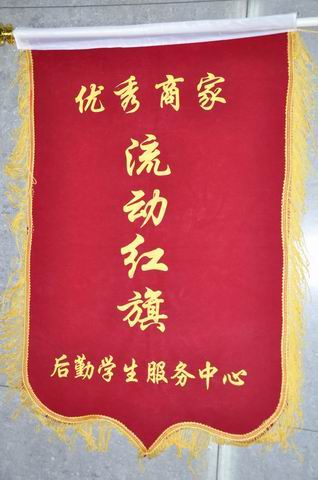 优秀商家
流动红旗
后勤学生服务中心